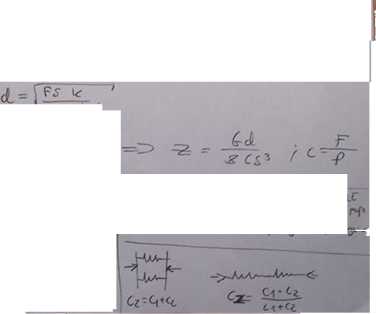 d = √FS K
=> Z = Gd / 8 CS³ ; C = F / f
C₂=C₁+C₂
C₂ = C₁·C₂ / C₁+C₂